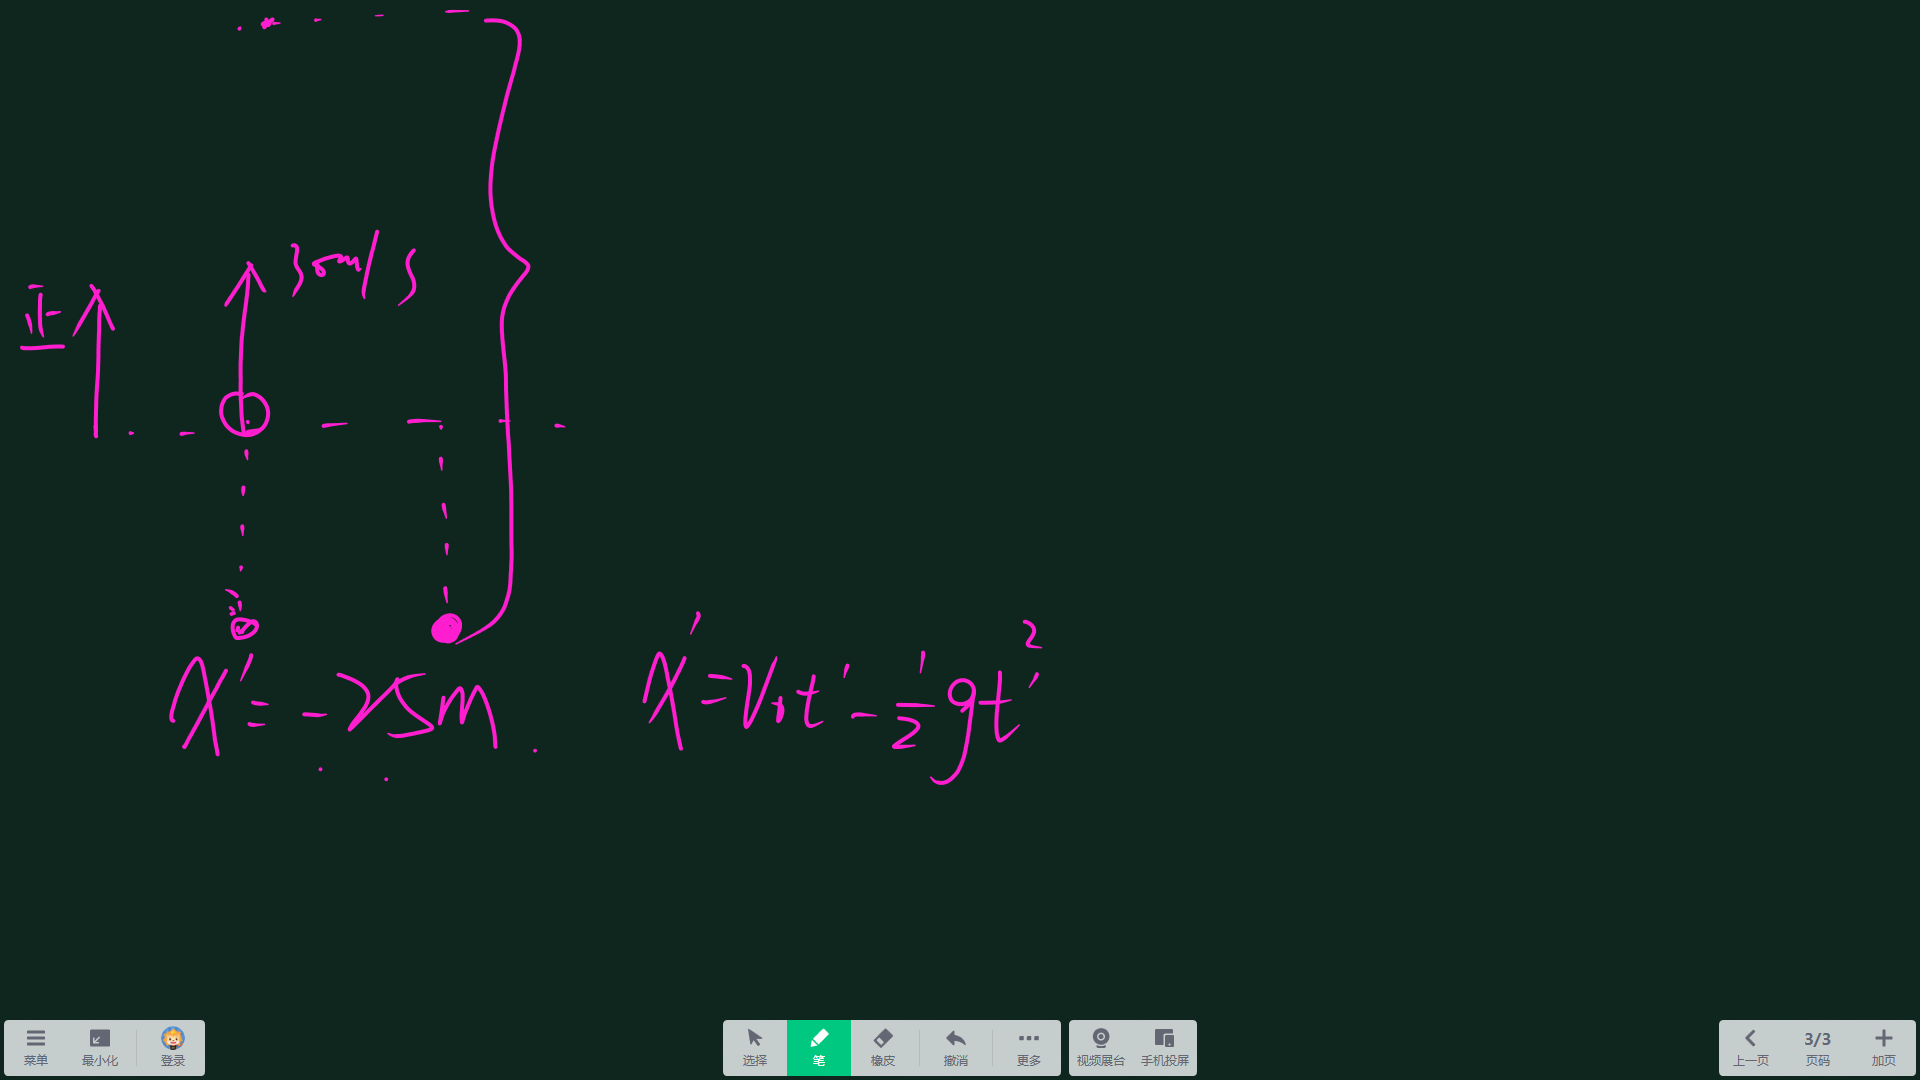 30m/s
正
x′= -25m
x′=V₀t′-1/2gt′²
菜单 最小化 登录 选择 笔 橡皮 撤消 更多 视频展台 手机投屏 上一页 3/3 页码 加页